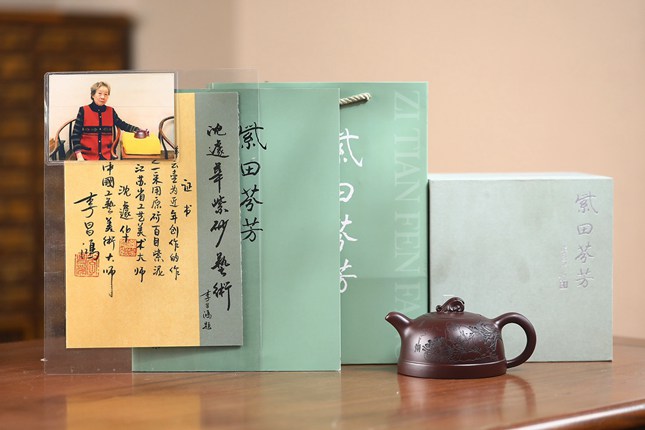 沈蘧華紫砂藝術
李昌鴻題
证书
云壶为近年创作的作
之一采用原矿百目紫泥
江苏省工艺美术大师
沈蘧华
中國工藝美術大师
李昌鴻
紫田芬芳
紫田芬芳
ZI TIAN FEN FA
紫田芬芳